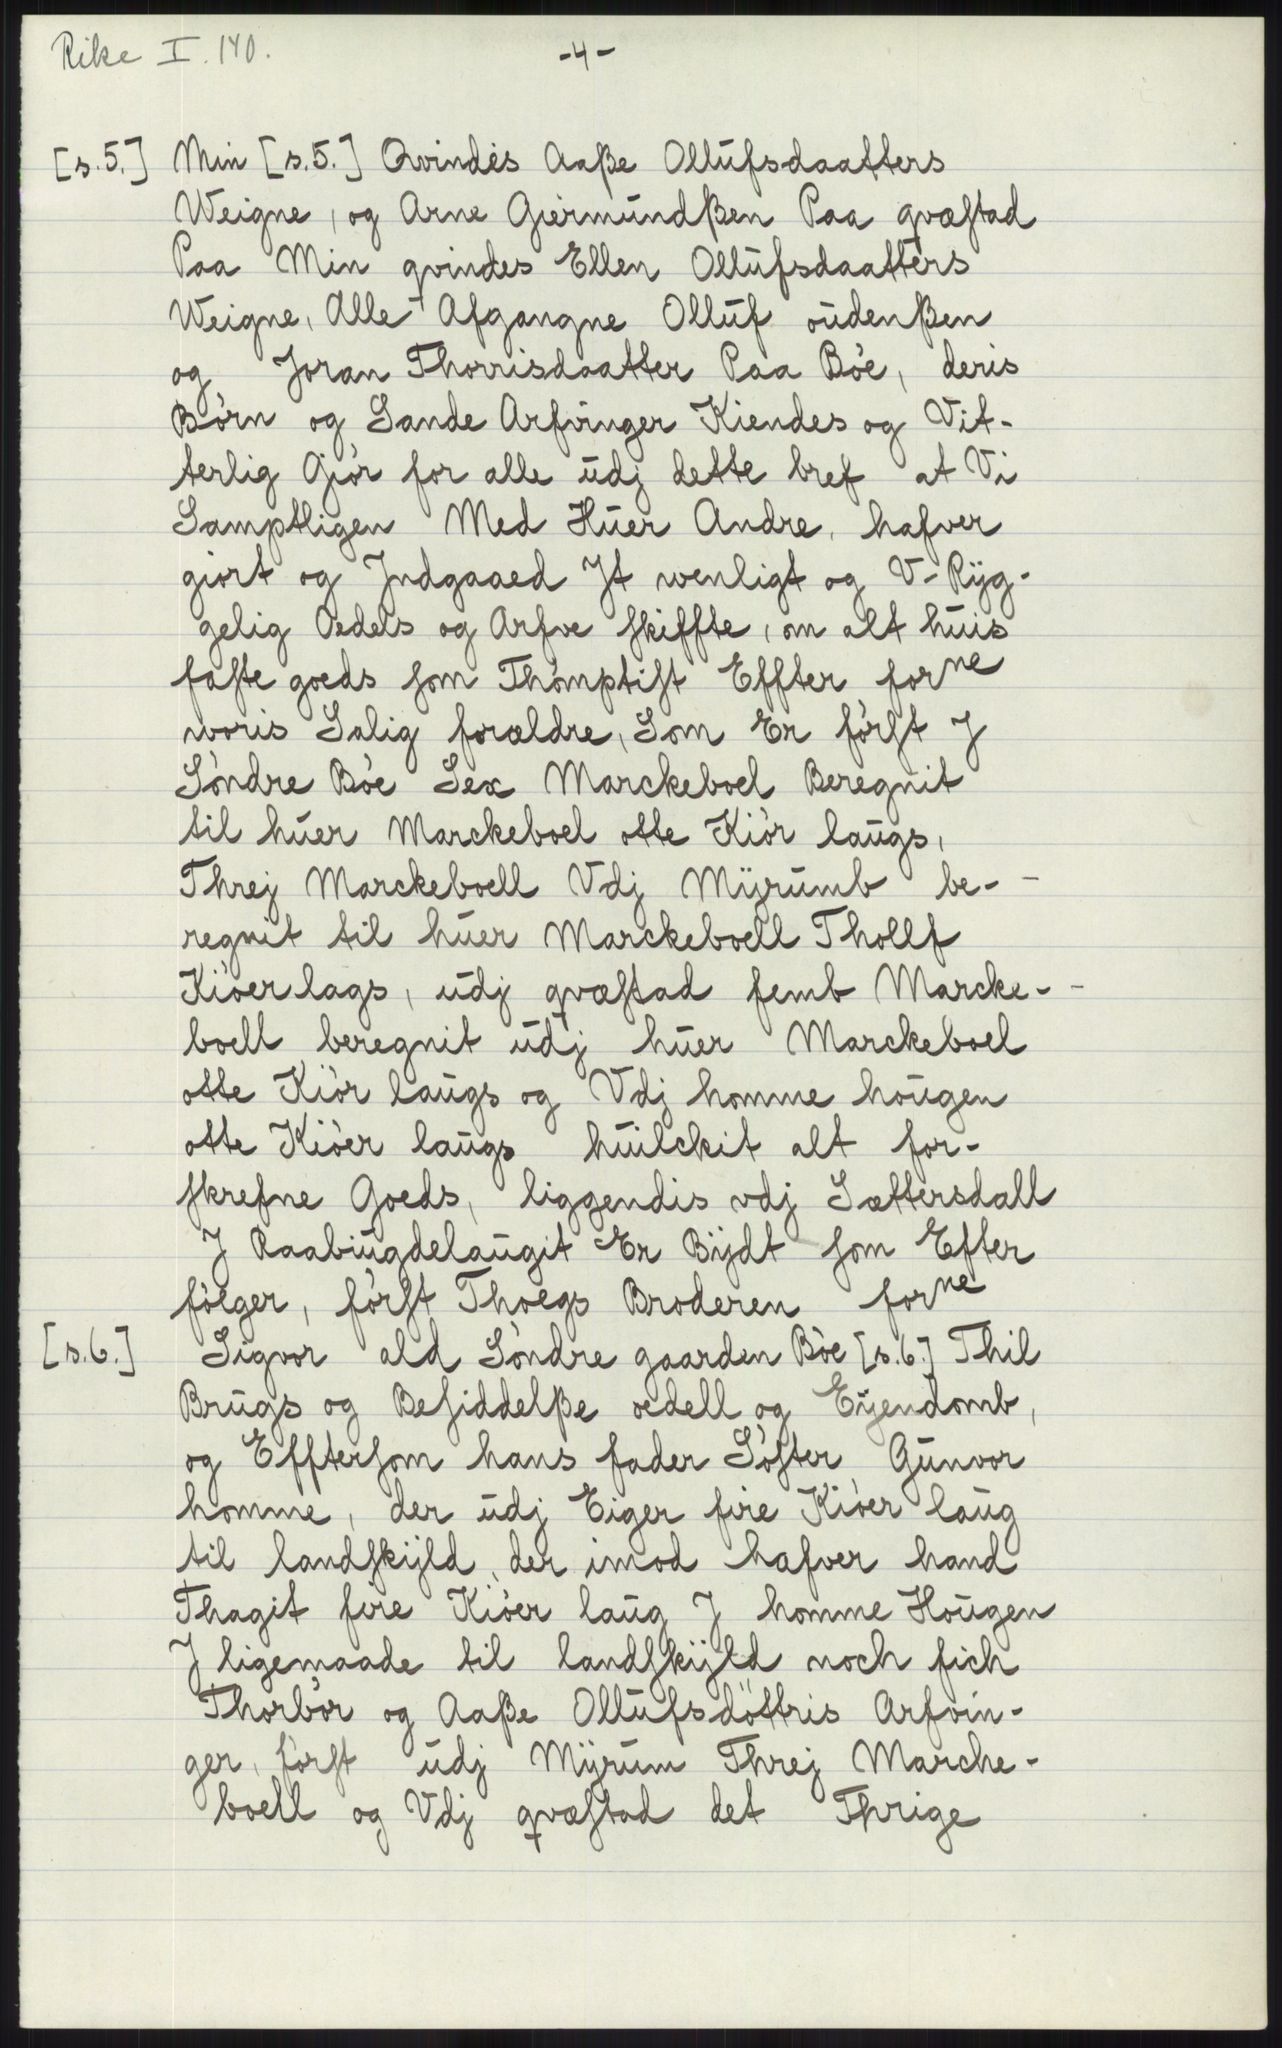 Rike I. 140.
-4-
[s.5.] Min [s.5.] Qvindes Aaße Ollufsdaatters
Weigne, og Arne Giermundßen Paa qvæstad
Paa Min qvindes Ellen Ollufsdaatters
Weigne, Alle Afgangne Olluf oudenßen
og Joran Thorrisdaatter Paa Bòe, deris
Bòrn og Sande Arfvinger Kiendes og Vit-
terlig Giòr for alle udj dette bref at Vi
Samptligen Med Huer Andre, hafver
giort og Jndgaaed Jt wenligt og V-Rÿg-
gelig Oedels og Arfve skiffte, om alt huis
faste goeds som Thòmptist Effter forne
woris Salig forældre, Som Er fòrst J
Sòndre Bòe Sex Marckeboel Beregnit
til huer Marckeboel otte Kiòr laugs,
Threj Marckeboell Vdj Mÿrumb be-
regnit til huer Marckeboell Thollf
Kiòerlags, udj qvæstad femb Marcke-
boell beregnit udj huer Marckeboel
otte Kiòr laugs og Vdj homme hougen
otte Kiòer laugs huilckit alt for-
skrefne Goeds, liggendis vdj Sættersdall
J Raabiugdelaugit Er Bÿdt som Efter
fòlger, fòrst Thoegs Broderen forne
[s.6.] Sigvor ald Sòndre gaarden Bòe [s.6.] Thil
Brugs og Besiddelße oedell og Eÿendomb,
og Efftersom hans fader Sòster Gunvor
homme, der udj Eiger fire Kiòer laug
til landskÿld, der imod hafver hand
Thagit fire Kiòer laug J homme Hougen
J ligemaade til landskÿld noch fich
Thorbòr og Aaße Ollufsdöttris Arfvin-
ger, fòrst udj Mÿrum Threj Marche-
boell og Vdj qvæstad det Thrige